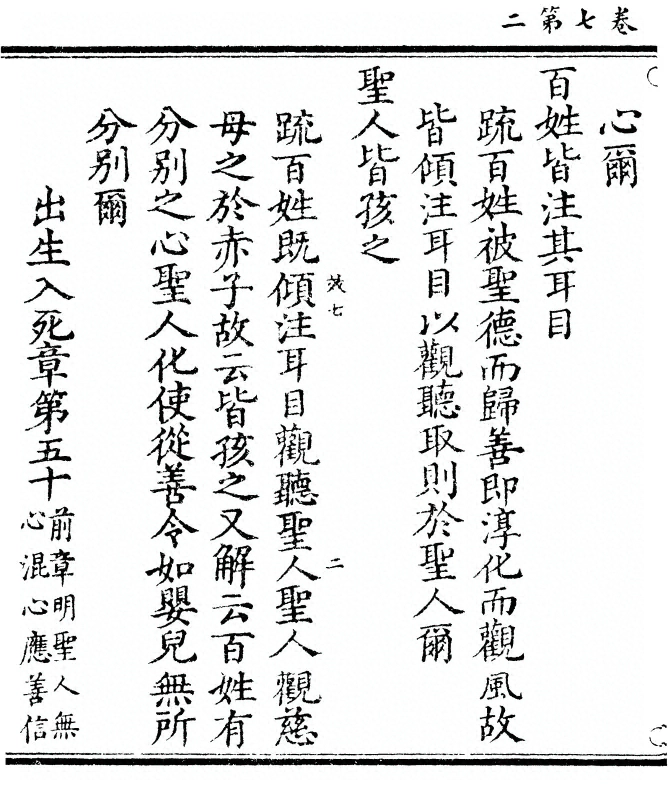 卷七第二
心爾
百姓皆注其耳目
疏百姓被聖德而歸善即淳化而觀風故
皆傾注耳目以觀聽取則於聖人爾
聖人皆孩之
疏百姓既傾注耳目觀聽聖人聖人觀慈
母之於赤子故云皆孩之又解云百姓有
分別之心聖人化使從善令如嬰兒無所
分別爾
出生入死章第五十前章明聖人無
心混心應善信
二